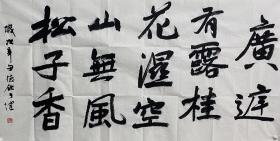 廣庭
有露桂
花濕空
山無風
松子香